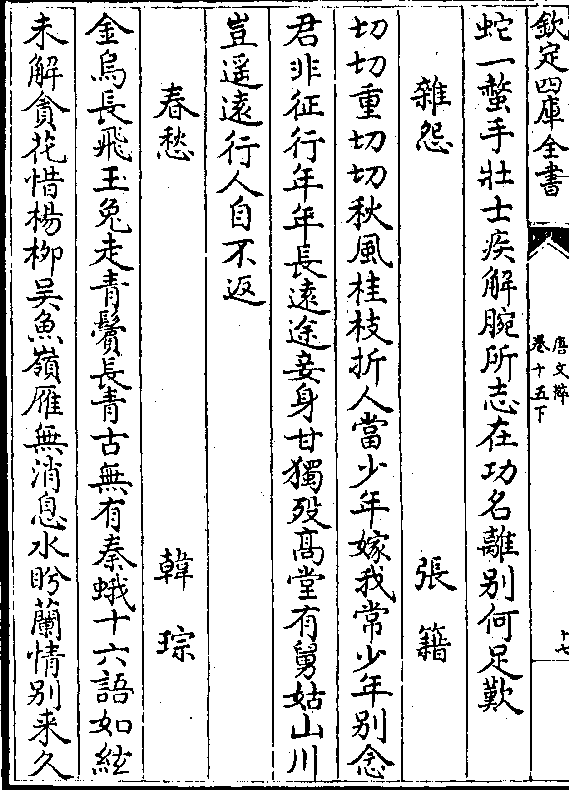 欽定四庫全書
唐文粹
卷十五下
十七
蛇一螫手壯士疾解腕所志在功名離别何足歎
雜怨　張籍
切切重切切秋風桂枝折人當少年嫁我常少年别念
君非征行年年長遠途妾身甘獨殁髙堂有舅姑山川
豈遥遠行人自不返
春愁　韓琮
金烏長飛玉兔走青鬢長青古無有秦蛾十六語如絃
未解貪花惜楊柳吴魚嶺雁無消息水盻蘭情别来久